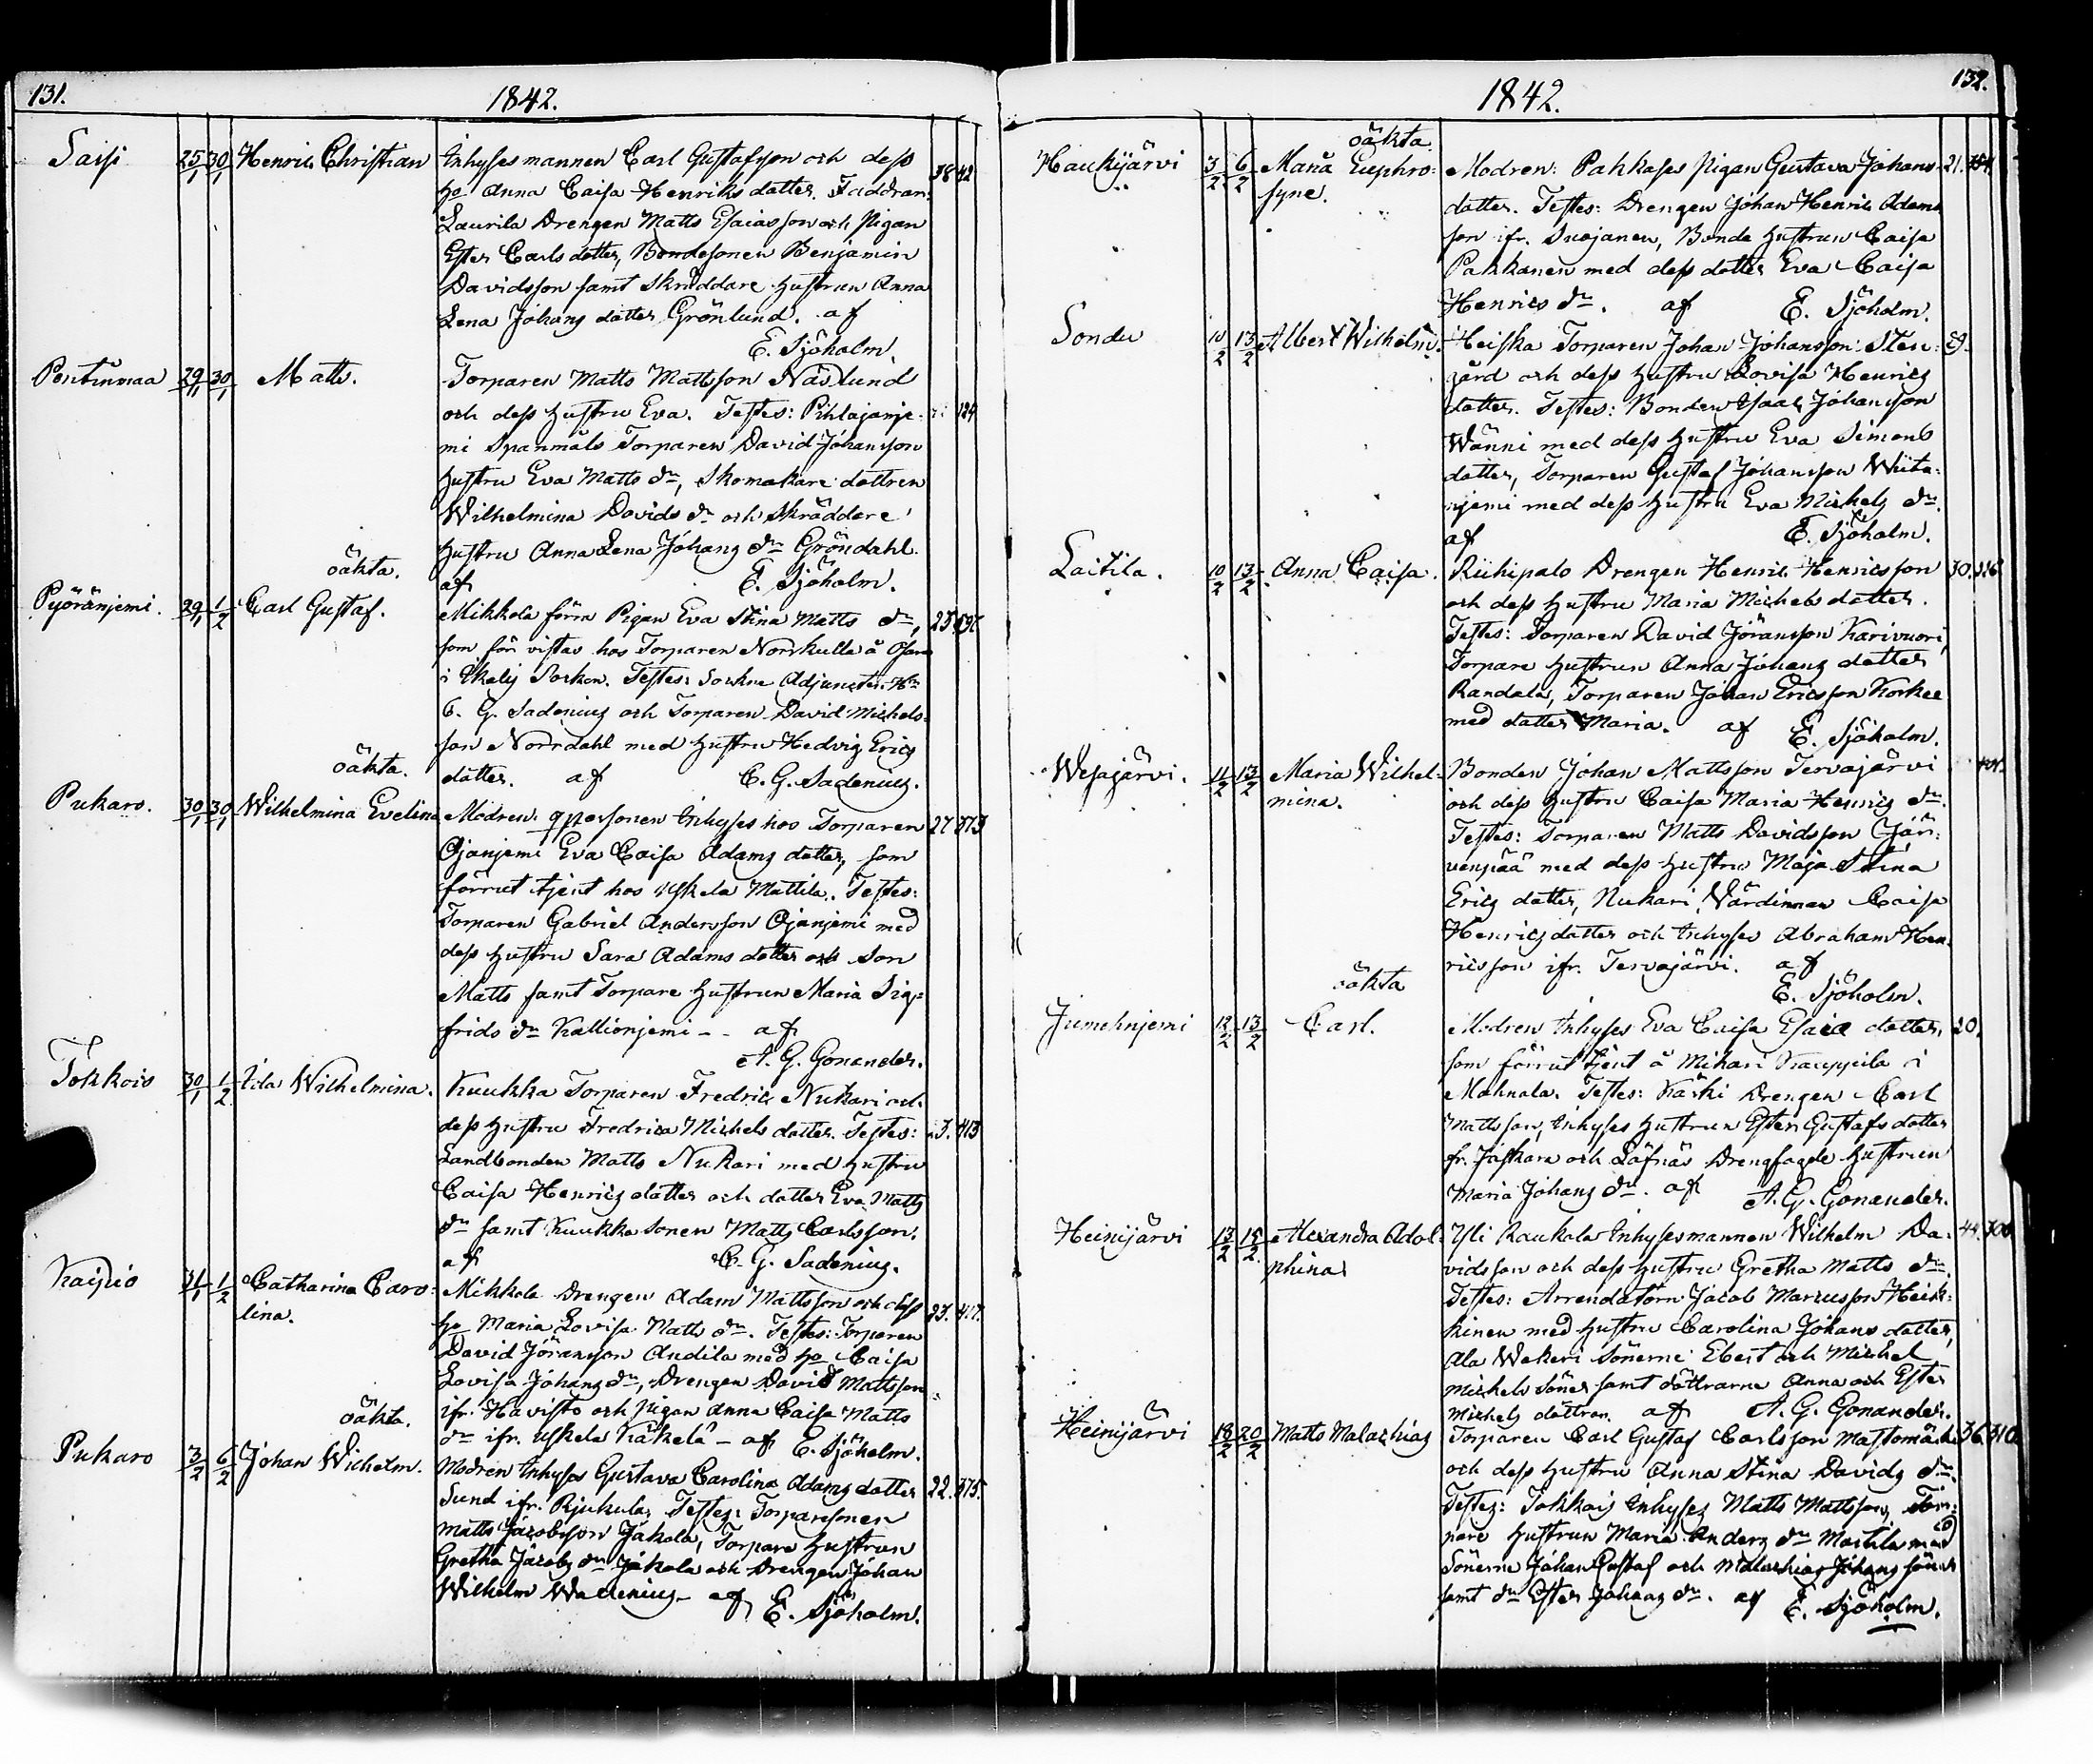 131.
1842.
Saisi 25/1 30/1 Henric Christian Inhysesmannen Carl Gustafsson och dess 38 42
ho Anna Caisa Henriks dotter. Faddran:
Laurila Drengen Matts Esaiasson och pigan
Ester Carls dotter, Bondesonen Benjamin
Davidsson samt Skräddare hustrun Anna
Lena Johans dotter Grönlund. af
E. Sjöholm.
Pentinmaa 29/1 30/1 Matts. Torparen Matts Mattsson Näslund
och dess hustru Eva. Testes: Pihlajanje- 124
mi Spanmåls Torparen David Johansson
hustru Eva Matts dr, Skomakare dottren
Wilhelmina Davids dr och Skräddare
hustru Anna Lena Johans dr Gröndahl.
oäkta. af E. Sjöholm.
Pyöränjemi. 29/1 1/2 Carl Gustaf. Mikkola förra Pigan Eva Stina Matts dr, 25
som för vistas hos Torparen Norrkulla å
i Socken. Testes: Sockne Adjuncten Hr
C. G. Sadenius och Torparen David Michels-
son Norrdahl med hustru Hedvig Erics
oäkta. dotter. af C. G. Sadenius.
Pukaro. 30/1 30/1 Wilhelmina Evelina Modren: qpersonen Inhyses hos Torparen 27 373
Ojanjemi Eva Caisa Adams dotter, som
förrut tjent hos Uskela Mattila. Testes:
Torparen Gabriel Andersson Ojanjemi med
dess hustru Sara Adams dotter och Son
Matts samt Torpare hustrun Maria Sig-
frids dr Kallionjemi - - af
A. G. Gonander.
Tokkois 30/1 1/2 Ida Wilhelmina. Kuukka Torparen Fredric Nukari och
dess hustru Fredrica Michels dotter. Testes: 413
Landbonden Matts Nukari med hustru
Caisa Henrics dotter och dotter Eva Matts
dr samt Kuukka Sonen Matts Carlsson.
af C. G. Sadenius.
Kaipio 31/1 1/2 Catharina Caro- Mikkola Drengen Adam Mattsson och dess 23.
lina. ho Maria Lovisa Matts dr. Testes: Torparen
David Jöransson Andila med ho Caisa
Lovisa Johans dr, Drengen David Mattsson
ifr. Havisto och pigan Anna Caisa Matts
oäkta. dr ifr. Uskela Käkelä - af E. Sjöholm.
Pukaro 3/2 6/2 Johan Wilhelm. Modren Inhyses Gustava Carolina Adams dotter 22. 375.
Sund ifr. Testes: Torparesonen
Matts Jacobsson Jakola, Torpare hustrun
Gretha Jacobs dr Jakola och Drengen Johan
Wilhelm Wadenius - af E. Sjöholm.
132.
1842.
oäkta.
Haukijärvi 3/2 6/2 Maria Euphro- Modren: Pakkases pigan Gustava Johans- 21.
syne. dotter. Testes: Drengen Johan Henric Adams
son ifr. Suojanen, Bonde hustrun Caisa
Pakkanen med dess dotter Eva Caisa
Henrics dr. af E. Sjöholm.
Sondu 10/2 13/2 Albert Wilhelm. Heiska Torparen Johan Johansson Sten-
gård och dess hustru Lovisa Henrics
dotter. Testes: Bonden Isaac Johansson
Wänni med dess hustru Eva Simons
dotter, Torparen Gustaf Johansson Wiita-
njemi med dess hustru Eva Michels dr.
af E. Sjöholm.
Laitila. 10/2 13/2 Anna Caisa. Riihipalo Drengen Henric Henricsson 30.
och dess hustru Maria Michels dotter.
Testes: Torparen David Jöransson Karivuori,
Torpare hustrun Anna Johans dotter
Randala, Torparen Johan Ericsson Korkee
med dotter Maria. af E. Sjöholm.
Wesajärvi. 11/2 13/2 Maria Wilhel- Bonden Johan Mattsson Tervajärvi
mina. och dess hustru Caisa Maria Henrics dr.
Testes: Torparen Matts Davidsson Jär-
venpää med dess hustru Maja Stina
Erics dotter, Nukari Värdinnan Caisa
Henrics dotter och Inhyses Abraham Hen-
ricsson ifr. Tervajärvi. af
oäkta E. Sjöholm.
Jumehnjemi 12/2 13/2 Carl. Modren Inhyses Eva Caisa Esaiæ dotter, 20.
som förrut tjent å Mihari Kauppila i
Mahnala. Testes: Käski Drengen Carl
Mattsson, Inhyses hustrun Ester Gustafs dotter
fr. Jaskara och Löfnäs Drengfogde hustrun
Maria Johans dr. af A. G. Gonander.
Heinijärvi 13/2 15/2 Alexandra Adol- Yli Raukola Inhysesmannen Wilhelm Da- 44. 300
phina vidsson och dess hustru Gretha Matts dr.
Testes: Arrendatorn Jacob Marcusson Heik-
kinen med hustru Carolina Johans dotter,
Ala Wakeri Sönerne Ebert och Michel
Michels Söner samt döttrarne Anna och Ester
Michels döttrar. af A. G. Gonander.
Heinijärvi 18/2 20/2 Matts Malachias Torparen Carl Gustaf Carlsson Mastomäki 36. 310.
och dess hustru Anna Stina Davids dr.
Testes: Tokkois Inhyses Matts Mattsson, Tor-
pare hustrun Maria Anders dr Mattila med
Sönerne Johan Gustaf och Malachias Johans söner
samt dr Ester Johans dr. af E. Sjöholm.